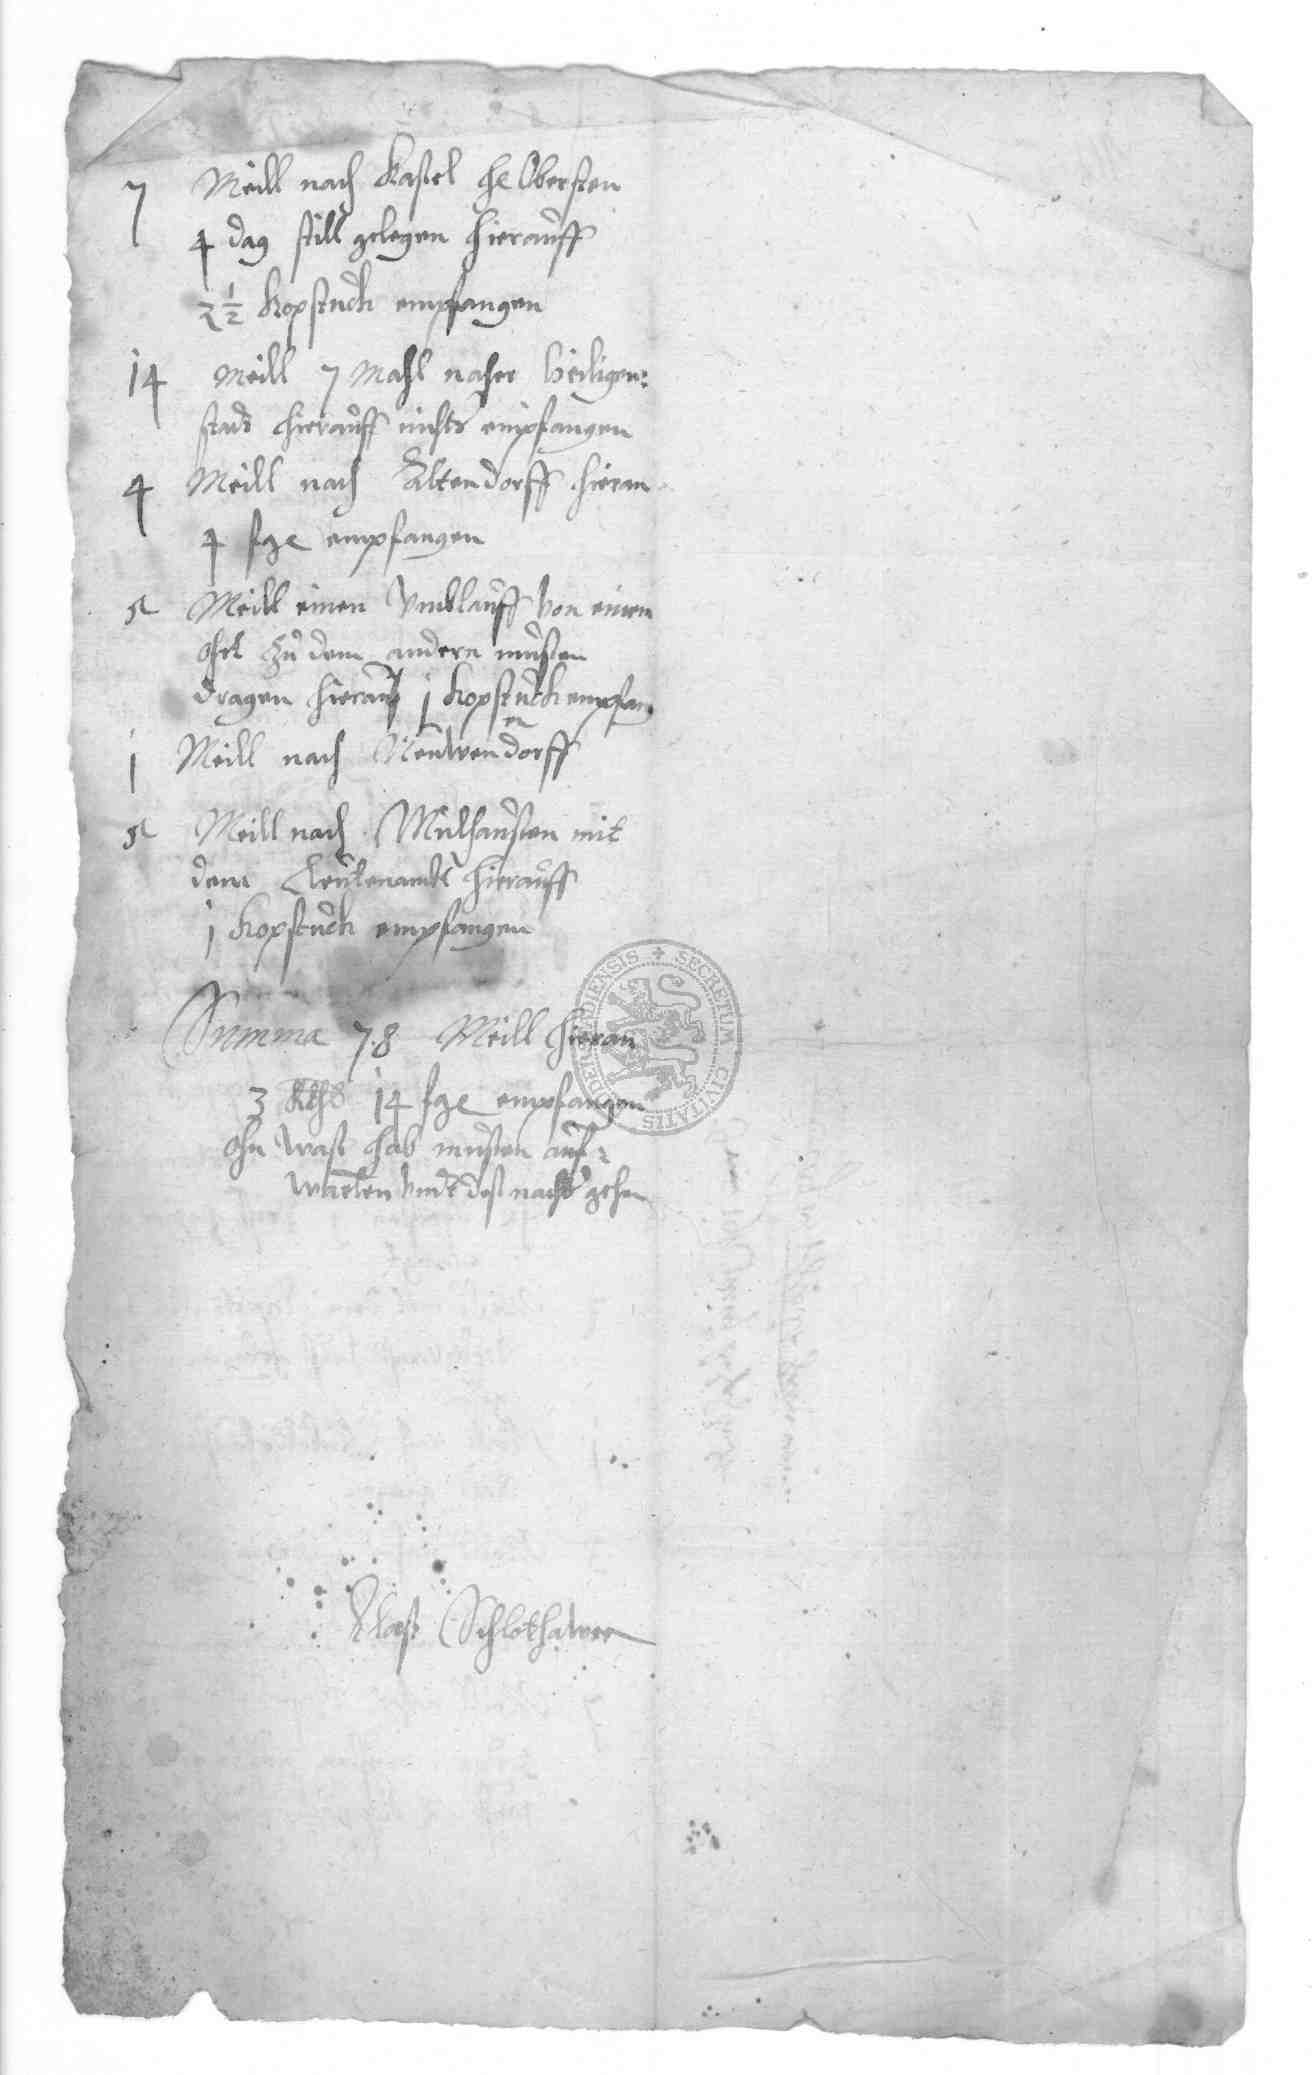 7 Meill nach Kassel he Obersten
4 dag still gelegen hierauff
2 1/2 Kopstuck empfangen
14 Meill 7 Mahl naher Heiligen:
stadt hierauff nichts empfangen
4 Meill nach Altendorff hieran
4 fge empfangen
5 Meill einen Umblauff von einem
ohrt zu dem andern mußen
dragen hierauff j Kopstuck empfan
j Meill nach Neuwendorff
en
5 Meill nach Mulhaußen mit
dem Leutenandt hierauff
j Kopstuck empfangen
Summa 78 Meill hieran
3 Rthl 14 fge empfangen
ohn waß hab mußen auf:
warten undt deß nachts gehen
SECRETUM CIVITATIS
Claß Schlothawer